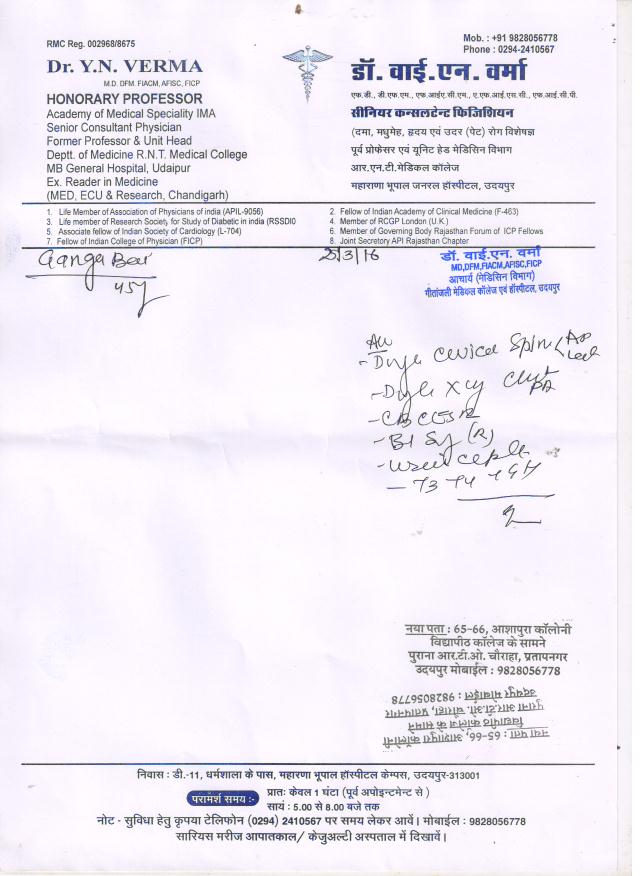 RMC Reg. 002968/8675
Dr. Y.N. VERMA
M.D. DFM. FIACM, AFISC, FICP
HONORARY PROFESSOR
Academy of Medical Speciality IMA
Senior Consultant Physician
Former Professor & Unit Head
Deptt. of Medicine R.N.T. Medical College
MB General Hospital, Udaipur
Ex. Reader in Medicine
(MED, ECU & Research, Chandigarh)
Mob. : +91 9828056778
Phone : 0294-2410567
डॉ. वाई.एन. वर्मा
एफ.डी., डी.एफ.एम., एफ.आई.ए.सी.एम., ए.एफ.आई.एस.सी., एफ.आई.सी.पी.
सीनियर कन्सलटेन्ट फिजिशियन
(दमा, मधुमेह, हृदय एवं उदर (पेट) रोग विशेषज्ञ
पूर्व प्रोफेसर एवं यूनिट हेड मेडिसिन विभाग
आर.एन.टी.मेडिकल कॉलेज
महाराणा भूपाल जनरल हॉस्पीटल, उदयपुर
1. Life Member of Association of Physicians of india (APIL-9056)
3. Life member of Research Society for Study of Diabetic in india (RSSDI0
5. Associate fellow of Indian Society of Cardiology (L-704)
7. Fellow of Indian College of Physician (FICP)
2. Fellow of Indian Academy of Clinical Medicine (F-463)
4. Member of RCGP London (U.K.)
6. Member of Governing Body Rajasthan Forum of ICP Fellows
8. Joint Secretary API Rajasthan Chapter
Ganga Bai
45y
/3/16
डॉ. वाई.एन. वर्मा
MD,DFM,FIACM,AFISC,FICP
आचार्य (मेडिसिन विभाग)
गीतांजली मेडिकल कॉलेज एवं हॉस्पीटल, उदयपुर
Spine
- CBC ESR
- Bl (R)
- T3 T4 TSH
नया पता : 65-66, आशापुरा कॉलोनी
विद्यापीठ कॉलेज के सामने
पुराना आर.टी.ओ. चौराहा, प्रतापनगर
उदयपुर मोबाईल : 9828056778
नया पता : 65-66, आशापुरा कॉलोनी
विद्यापीठ कॉलेज के सामने
पुराना आर.टी.ओ. चौराहा, प्रतापनगर
उदयपुर मोबाईल : 9828056778
निवास : डी.-11, धर्मशाला के पास, महारणा भूपाल हॉस्पीटल केम्पस, उदयपुर-313001
परामर्श समय :-
प्रातः केवल 1 घंटा (पूर्व अपोइन्टमेन्ट से )
सायं : 5.00 से 8.00 बजे तक
नोट - सुविधा हेतु कृपया टेलिफोन (0294) 2410567 पर समय लेकर आवें। मोबाईल : 9828056778
सारियस मरीज आपातकाल/ केजुअल्टी अस्पताल में दिखावें।